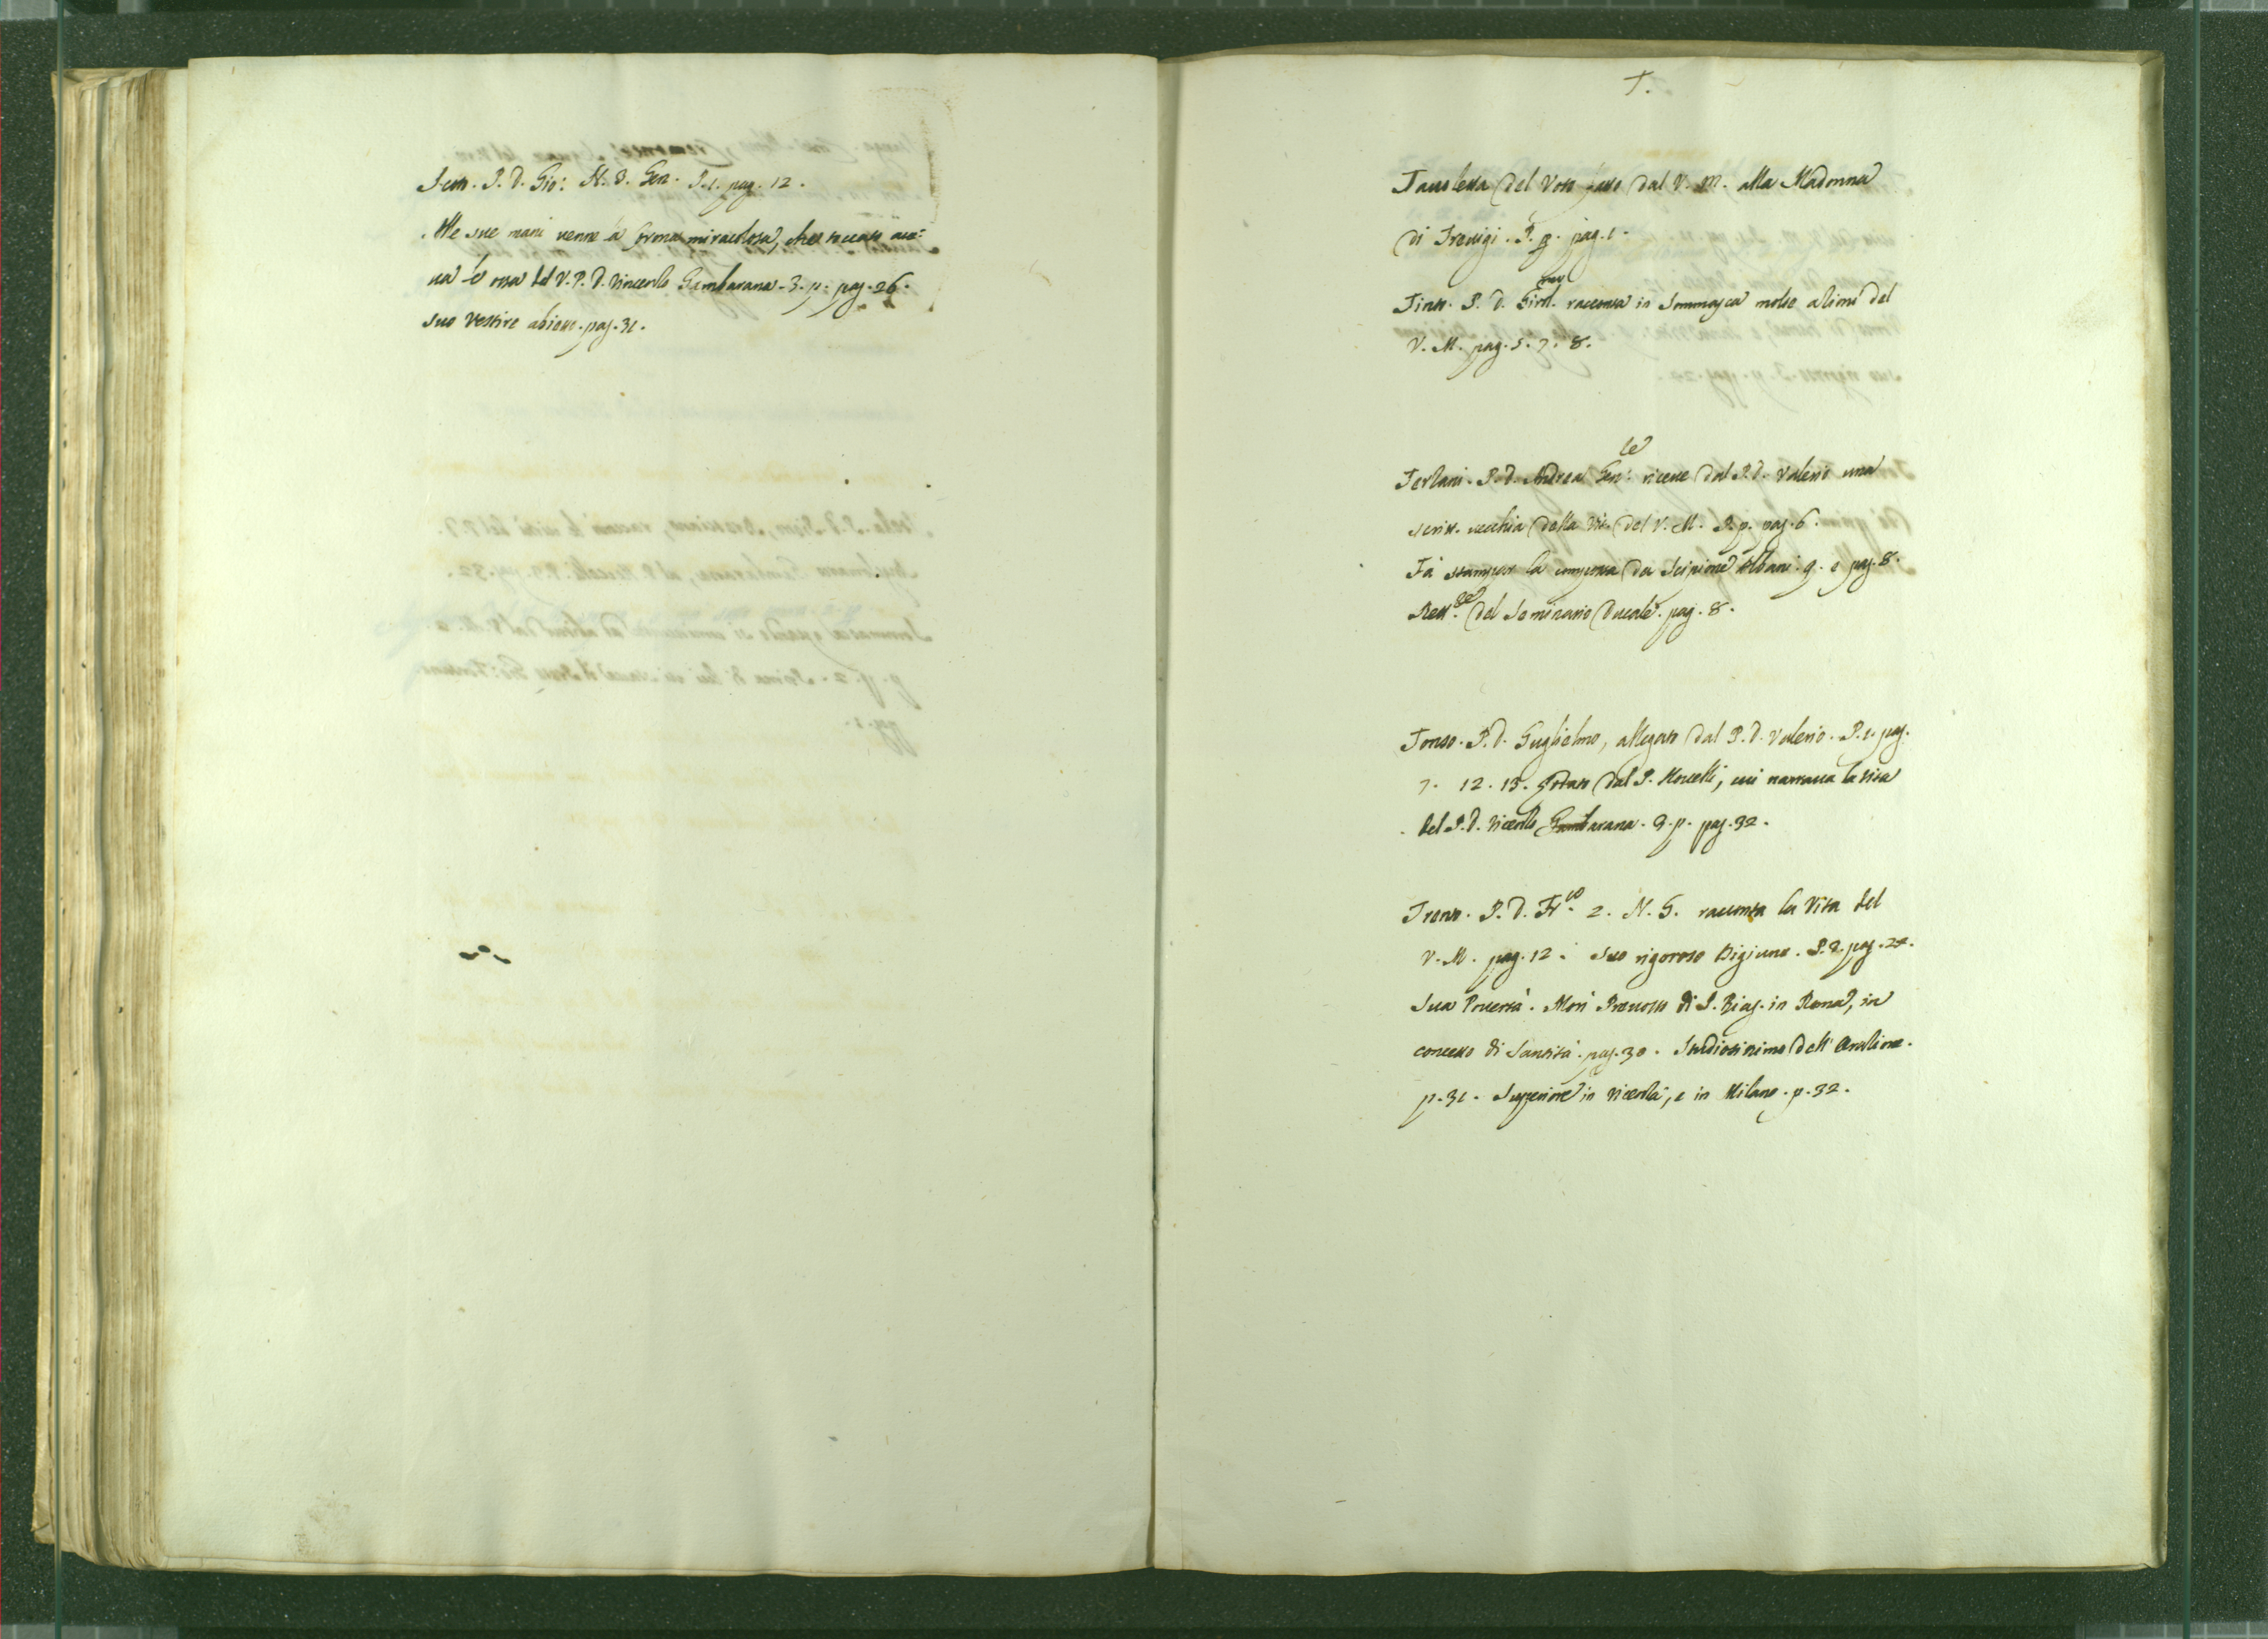 Scoti. P. D. Gio: N. 8. Gen. P. 1. pag. 12.
Alle sue mani venne la Corona miracolosa, che toccato ave=
va le ossa del V. P. D. Vincenzo Gambarana. 3. p. pag. 26.
suo vestire abietto. pag. 31.
T.
Tavoletta del Voto fatto dal V. M. alla Madonna
di Trevigi. P. 2. pag. 1.
Tinto. P. D. Girol. racconta in Sommasca molte azioni del
V. M. pag. 5. 7. 8.
Terzani. P. D. Andrea Gen:le riceve dal P. D. Valerio una
scritt. vecchia della Vit. del V. M. P. p. pag. 6.
Fà stampar la composta da Scipione Albani. 9. e pag. 8.
Rett.re del Seminario Ducale. pag. 8.
Tonso. P. D. Guglielmo, allegato dal P. D. Valerio. P. 1. pag.
7. 12. 13. lodato dal P. Novelli, cui narrava la vita
del P. D. Vicenzo Gambarana. 3. p. pag. 32.
Tronto. P. D. Fr.co 2. N. 5. racconta la Vita del
V. M. pag. 12. Suo rigoroso Digiuno. P. 2. pag. 24.
Sua Povertà. Morì Prevosto di S. Biag. in Roma, in
concetto di Santità. pag. 30. Studiosissimo dell' Orazione.
p. 31. Superiore in Vicenza, e in Milano. p. 32.